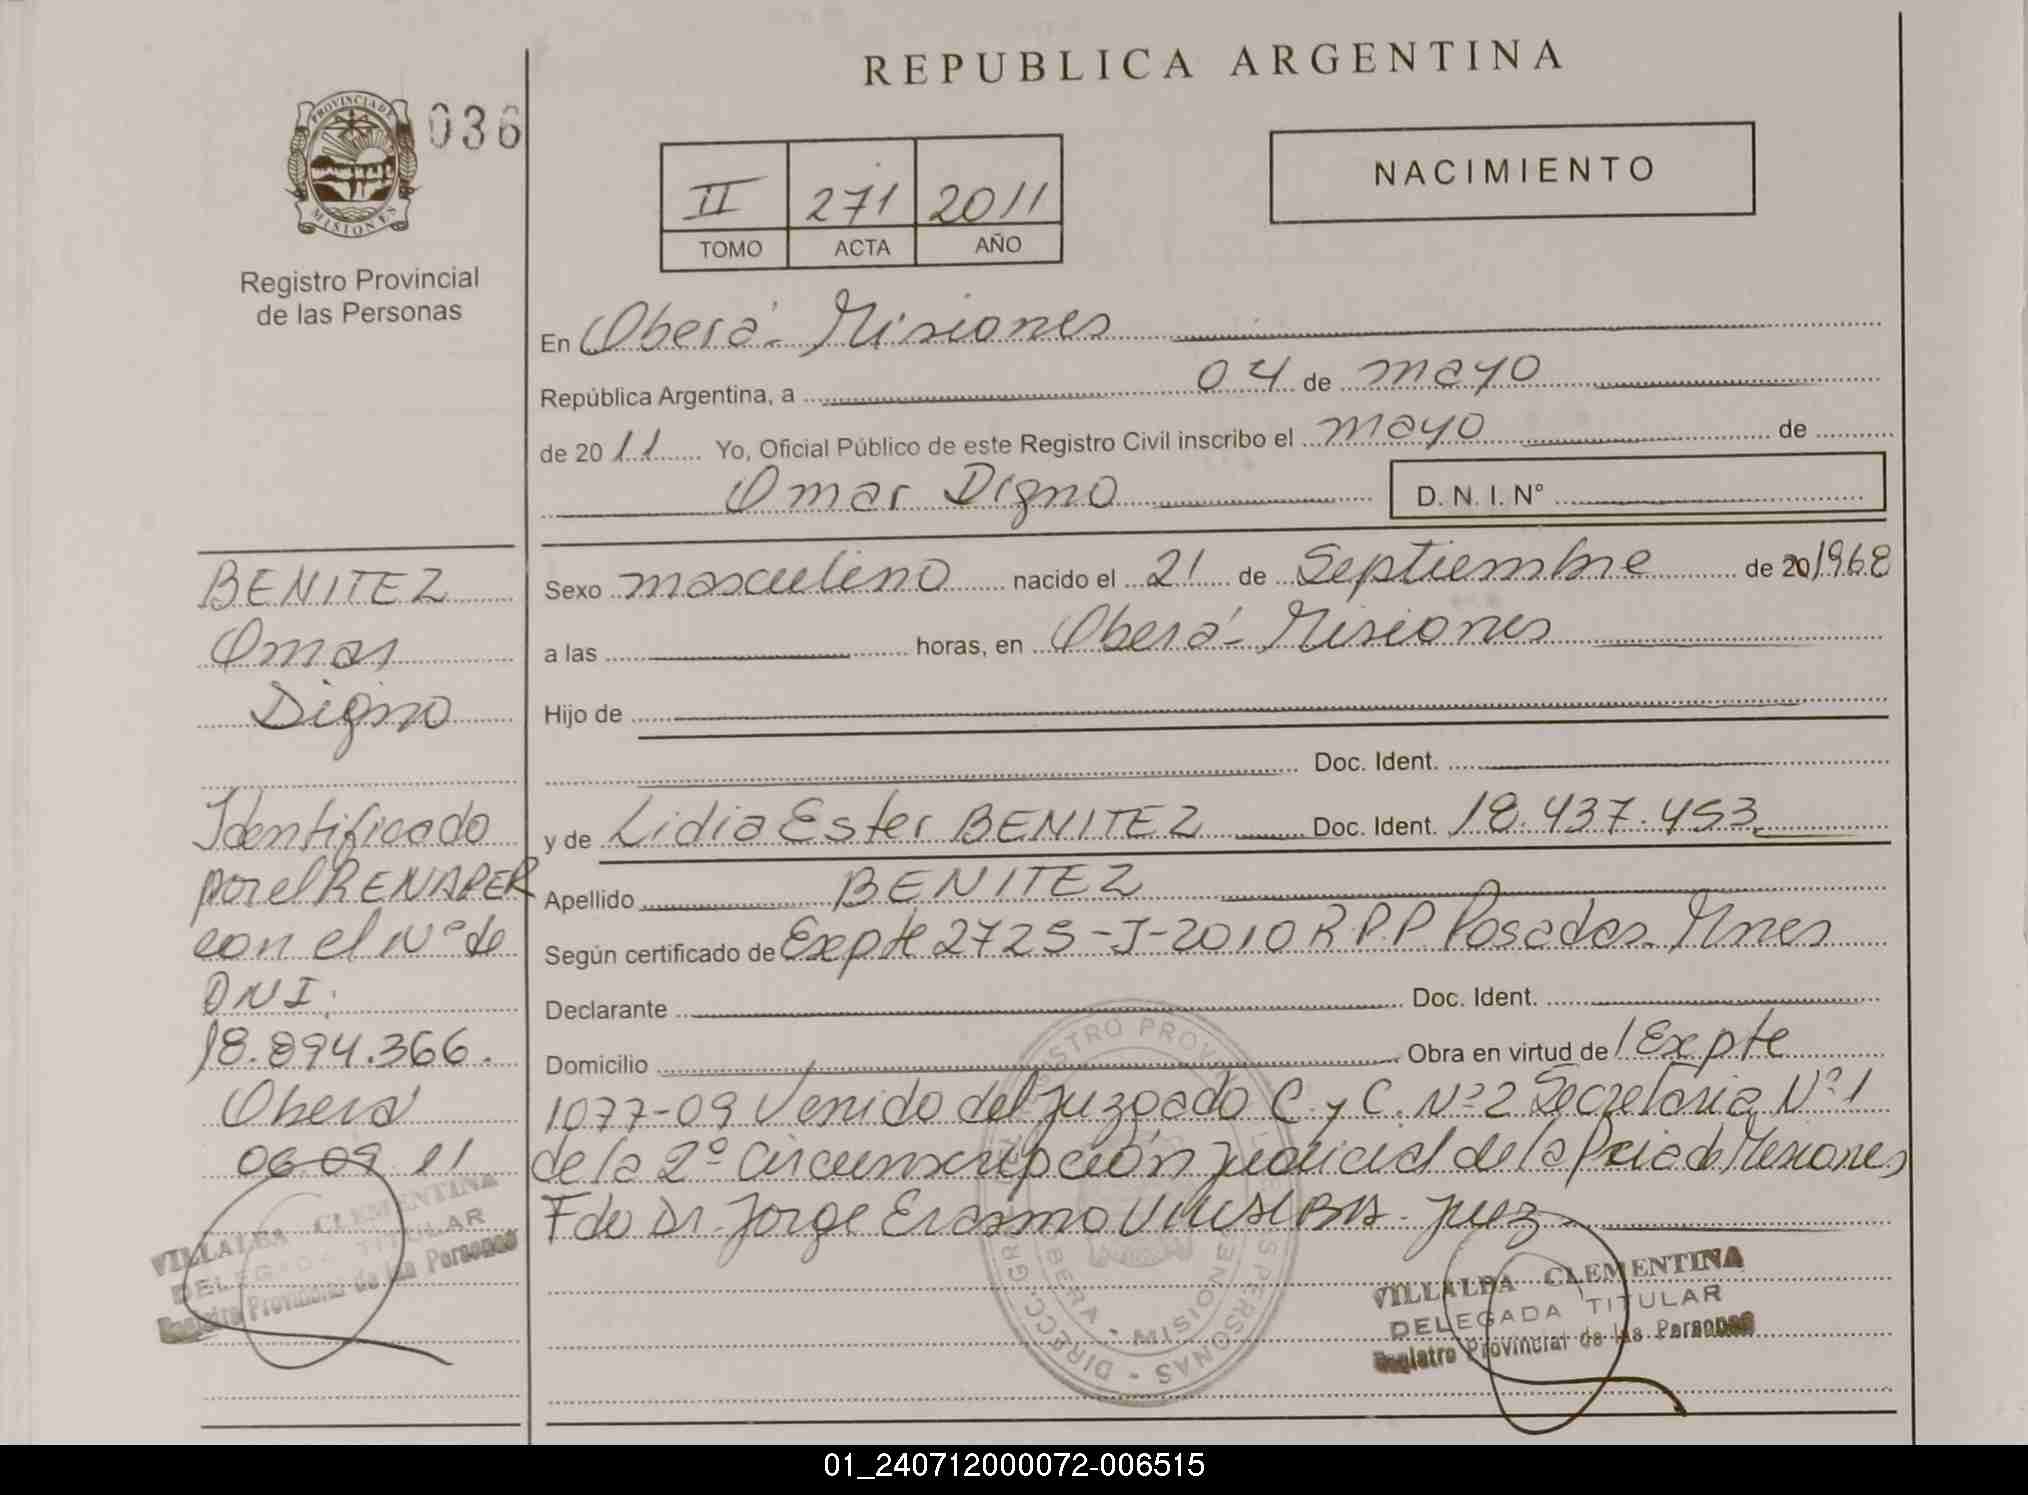 REPUBLICA ARGENTINA
PROVINCIA DE
MISIONES
036
Registro Provincial
de las Personas
II 271 2011
TOMO ACTA AÑO
NACIMIENTO
En Oberá - Misiones
República Argentina, a 04 de mayo
de 2011 Yo, Oficial Público de este Registro Civil inscribo el mayo de
Omar Digno D. N. I. N°
BENITEZ
Omar
Digno
Identificado
por el RENAPER
con el N° de
DNI.
18.894.366.
Oberá
06 09 11
VILLALBA CLEMENTINA
DELEGADA TITULAR
Registro Provincial de las Personas
Sexo masculino nacido el 21 de Septiembre de 20 1968
a las horas, en Oberá - Misiones
Hijo de
Doc. Ident.
y de Lidia Ester BENITEZ Doc. Ident. 18.437.453
Apellido BENITEZ
Según certificado de Expte 2725-J-2010 R.P.P Posadas Mnes
Declarante Doc. Ident.
Domicilio Obra en virtud de / Expte
1077-09 Venido del Juzgado C. y C. N°2 Secretaria N°1
de la 2° Circunscripción Judicial de la Pcia de Misiones
Fdo Dr. Jorge Erasmo VILLALBA - Juez
VILLALBA CLEMENTINA
DELEGADA TITULAR
Registro Provincial de las Personas
01_240712000072-006515